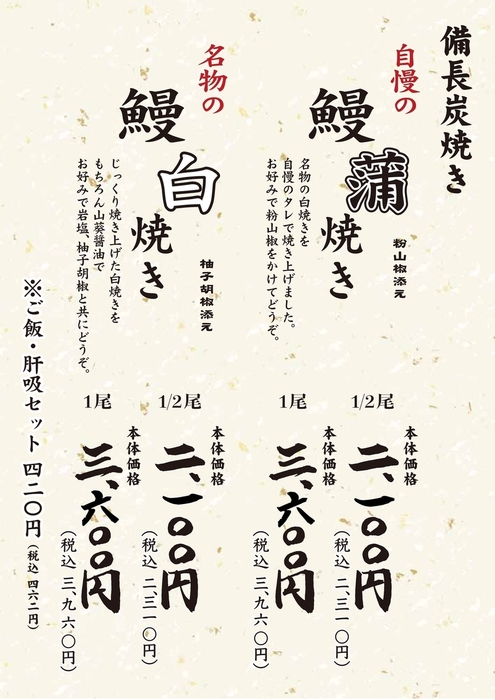 備長炭焼き
自慢の
鰻蒲焼き
粉山椒添え
名物の白焼きを
自慢のタレで焼き上げました。
お好みで粉山椒をかけてどうぞ。
1/2尾
本体価格
二、一〇〇円
（税込 二、三一〇円）
1尾
本体価格
三、六〇〇円
（税込 三、九六〇円）
名物の
鰻白焼き
柚子胡椒添え
じっくり焼き上げた白焼きを
もちろん山葵醤油で
お好みで岩塩、柚子胡椒と共にどうぞ。
1/2尾
本体価格
二、一〇〇円
（税込 二、三一〇円）
1尾
本体価格
三、六〇〇円
（税込 三、九六〇円）
※ご飯・肝吸セット 四二〇円（税込 四六二円）